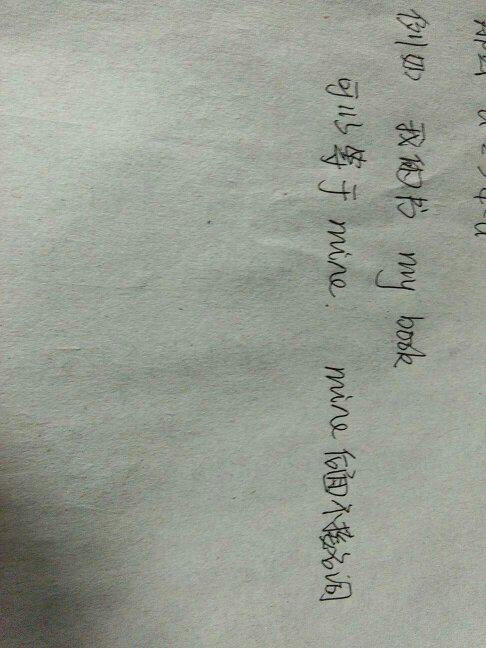 例如 我的书 my book
可以等于 mine. mine后面不接名词